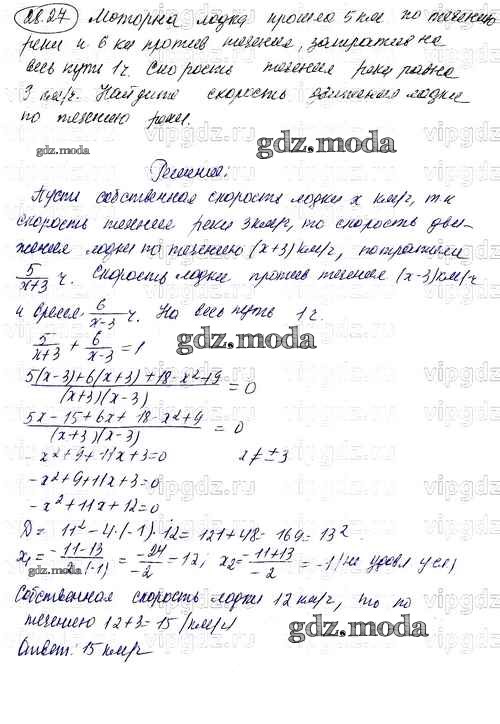 28.27 Моторна лодка прошла 5 км по течению
реки и 6 км против течения, затратив на
весь путь 1ч. Скорость течения реки равна
3 км/ч. Найдите скорость движения лодки
по течению реки.
gdz.moda
gdz.moda
Решение:
Пусть собственная скорость лодки x км/ч, т.к
скорость течения реки 3км/ч, то скорость дви-
жения лодки по течению (x+3) км/ч, потратили
5/(x+3) ч. Скорость лодки против течения (x-3) км/ч
и время 6/(x-3) ч. На весь путь 1 ч.
gdz.moda
5/(x+3) + 6/(x-3) = 1
(5(x-3)+6(x+3)+18-x²+9)/((x+3)(x-3)) = 0
(5x-15+6x+18-x²+9)/((x+3)(x-3)) = 0
-x²+9+11x+3=0 x≠±3
-x²+9+11x+3=0
-x²+11x+12=0
D = 11²-4·(-1)·12 = 121+48=169=13².
x₁ = (-11-13)/(2·(-1)) = -24/-2 = 12, x₂ = (-11+13)/-2 = -1 (не удовл усл)
gdz.moda
Собственная скорость лодки 12 км/ч, то по
течению 12+3=15 (км/ч)
gdz.moda
Ответ: 15 км/ч